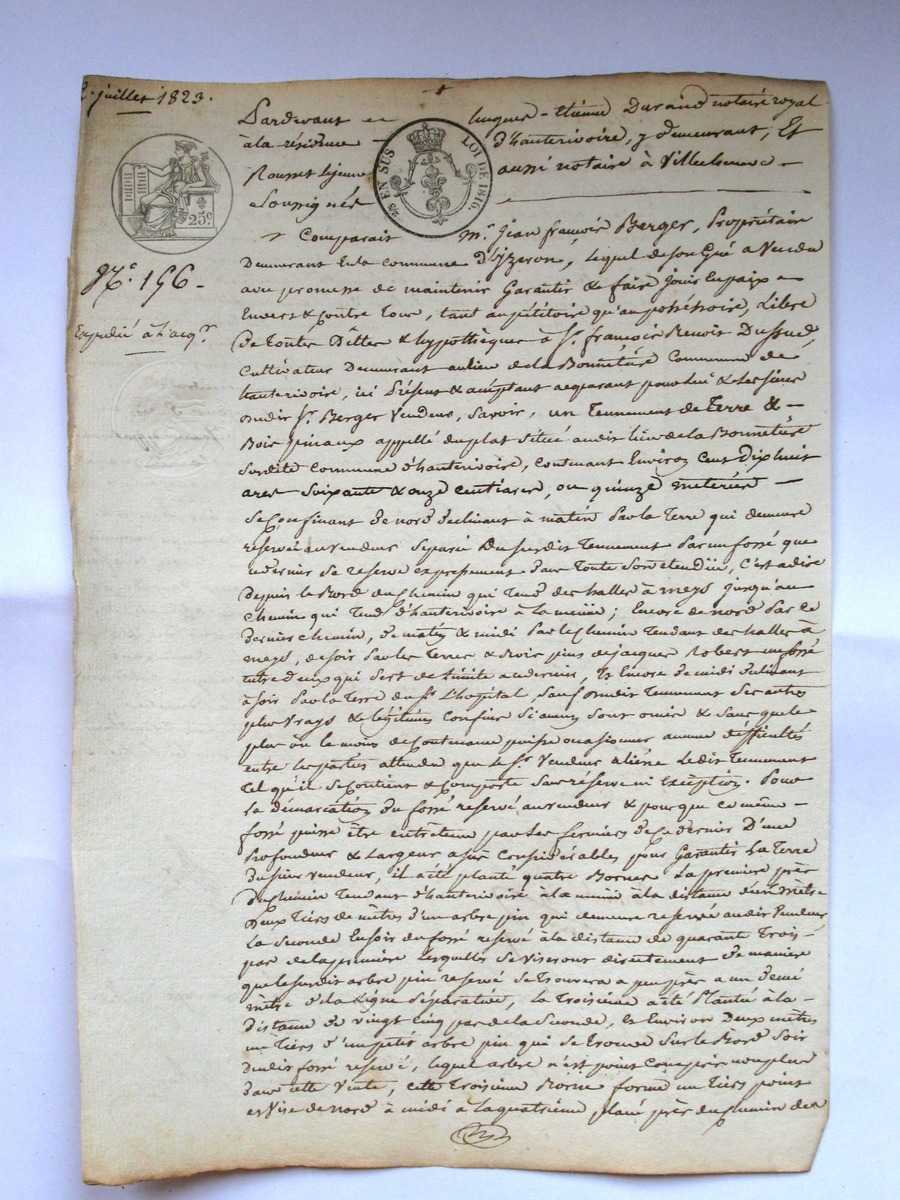 2. juillet 1823.
Pardevant hugues-Etienne Durand notaire royal
à la résidence d'hauterivoire, y demeurant, Et
Rousset Lejeune aussi notaire à Villechenève -
Soussignés
25c
¼ EN SUS LOI DE 1816.
Comparait Mr. Jean françois Berger, Propriétaire
N.° 156 -
Demeurant En la commune D'yzeron, lequel de son Gré a Vendu
avec promesse de maintenir Garantir & faire jouir en paix
Expédié à l'acqr.
Envers & Contre tous, tant au pétitoire qu'au possessoire, Libre
de toutes Dettes & hypothèques à Sr. françois Benoit Dussud
Cultivateur Demeurant au lieu de la Bonnetüre Commune de
hauterivoire, ici Présent & acceptant acquérant pour lui & les siens
dudit Sr. Berger Vendeur, Savoir, un Tennement de Terre & -
Bois pineaux appellé du plat Situé audit lieu de la Bonnetüre
Susdite Commune d'hauterivoire, Contenant Environ Cent Dix huit
ares Soixante & onze Centiares, ou quinze meterées -
Se Confinant de nord declinant à matin Par la Terre qui demeure
réservée au vendeur separée Du susdit Tennement Par un fossé que
ce dernier se réserve expressement dans Toute Son étendue, C'est a dire
depuis le Bord du Chemin qui tend des halles à meys jusqu'au
Chemin qui Tend d'hauterivoire à la ; Encore de nord Par ce
dernier chemin, de matin & midi Par le Chemin Tendant des halles à
meys, de soir Par les Terres & Bois pins de jacques Robert un fossé
entre deux qui sert de limite au dernier, Et Encore de midi declinant
à soir Par la Terre du Sr. L'hopital, Sauf dudit Tennement Ses autres
plus Vrays & légitimes Confins Si aucuns sont omis & Sans que le
plus ou le moins de Contenance puisse occasionner aucune difficultés
entre les parties attendu que le Sr. Vendeur aliène Ledit Tennement
Tel qu'il Se Contient & Comporte Sans réserve ni Exception. Pour
La démarcation du fossé réservé au vendeur & pour que ce même -
fossé puisse être entretenu par les fermiers de Ce dernier D'une
Profondeur & Largeur assez Considérables pour Garantir La Terre
du sieur Vendeur, il a été planté quatre Bornes La première près
du Chemin Tendant d'hauterivoire à la à la distance d'un mètre
Deux Tiers de mètre d'un arbre pin qui demeure réservé audit Vendeur
La Seconde En soir du fossé réservé à la distance de quarante Trois -
pas de la première Lesquelles Se Viseront directement De manière
que le susdit arbre pin réservé Se Trouvera a peu près a un Demi
mètre de la Ligne Séparative, La Troisième a été Plantée à la -
distance de Vingt cinq pas de la Seconde, Et Environ Deux mètres
un Tiers d'un petit arbre pin qui se Trouve Sur le Bord Soir
dudit fossé réservé, lequel arbre n'est point Compris non plus
dans cette Vente, cette Troisième Borne forme un Tiers point
et Vise de nord à midi à La quatrième placée près du Chemin des